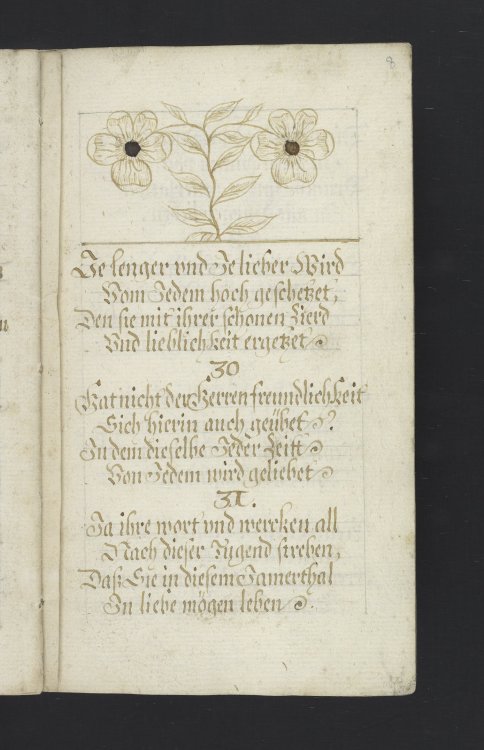 8
Je lenger vnd Je lieber Wird
Vom Jedem hoch geschetzet,
Den sie mit ihrer schonen Zierd
Vnd lieblichkeit ergetzet
30
Hat nicht der Herren freundlichkeit
Sich hierin auch geübet
In dem dieselbe Jeder Zeitt
Von Jedem wird geliebet
31.
Ja ihre wort vnd wercken all
Nach dieser Tugend streben,
Daß Sie in diesem Jamerthal
In liebe mögen leben